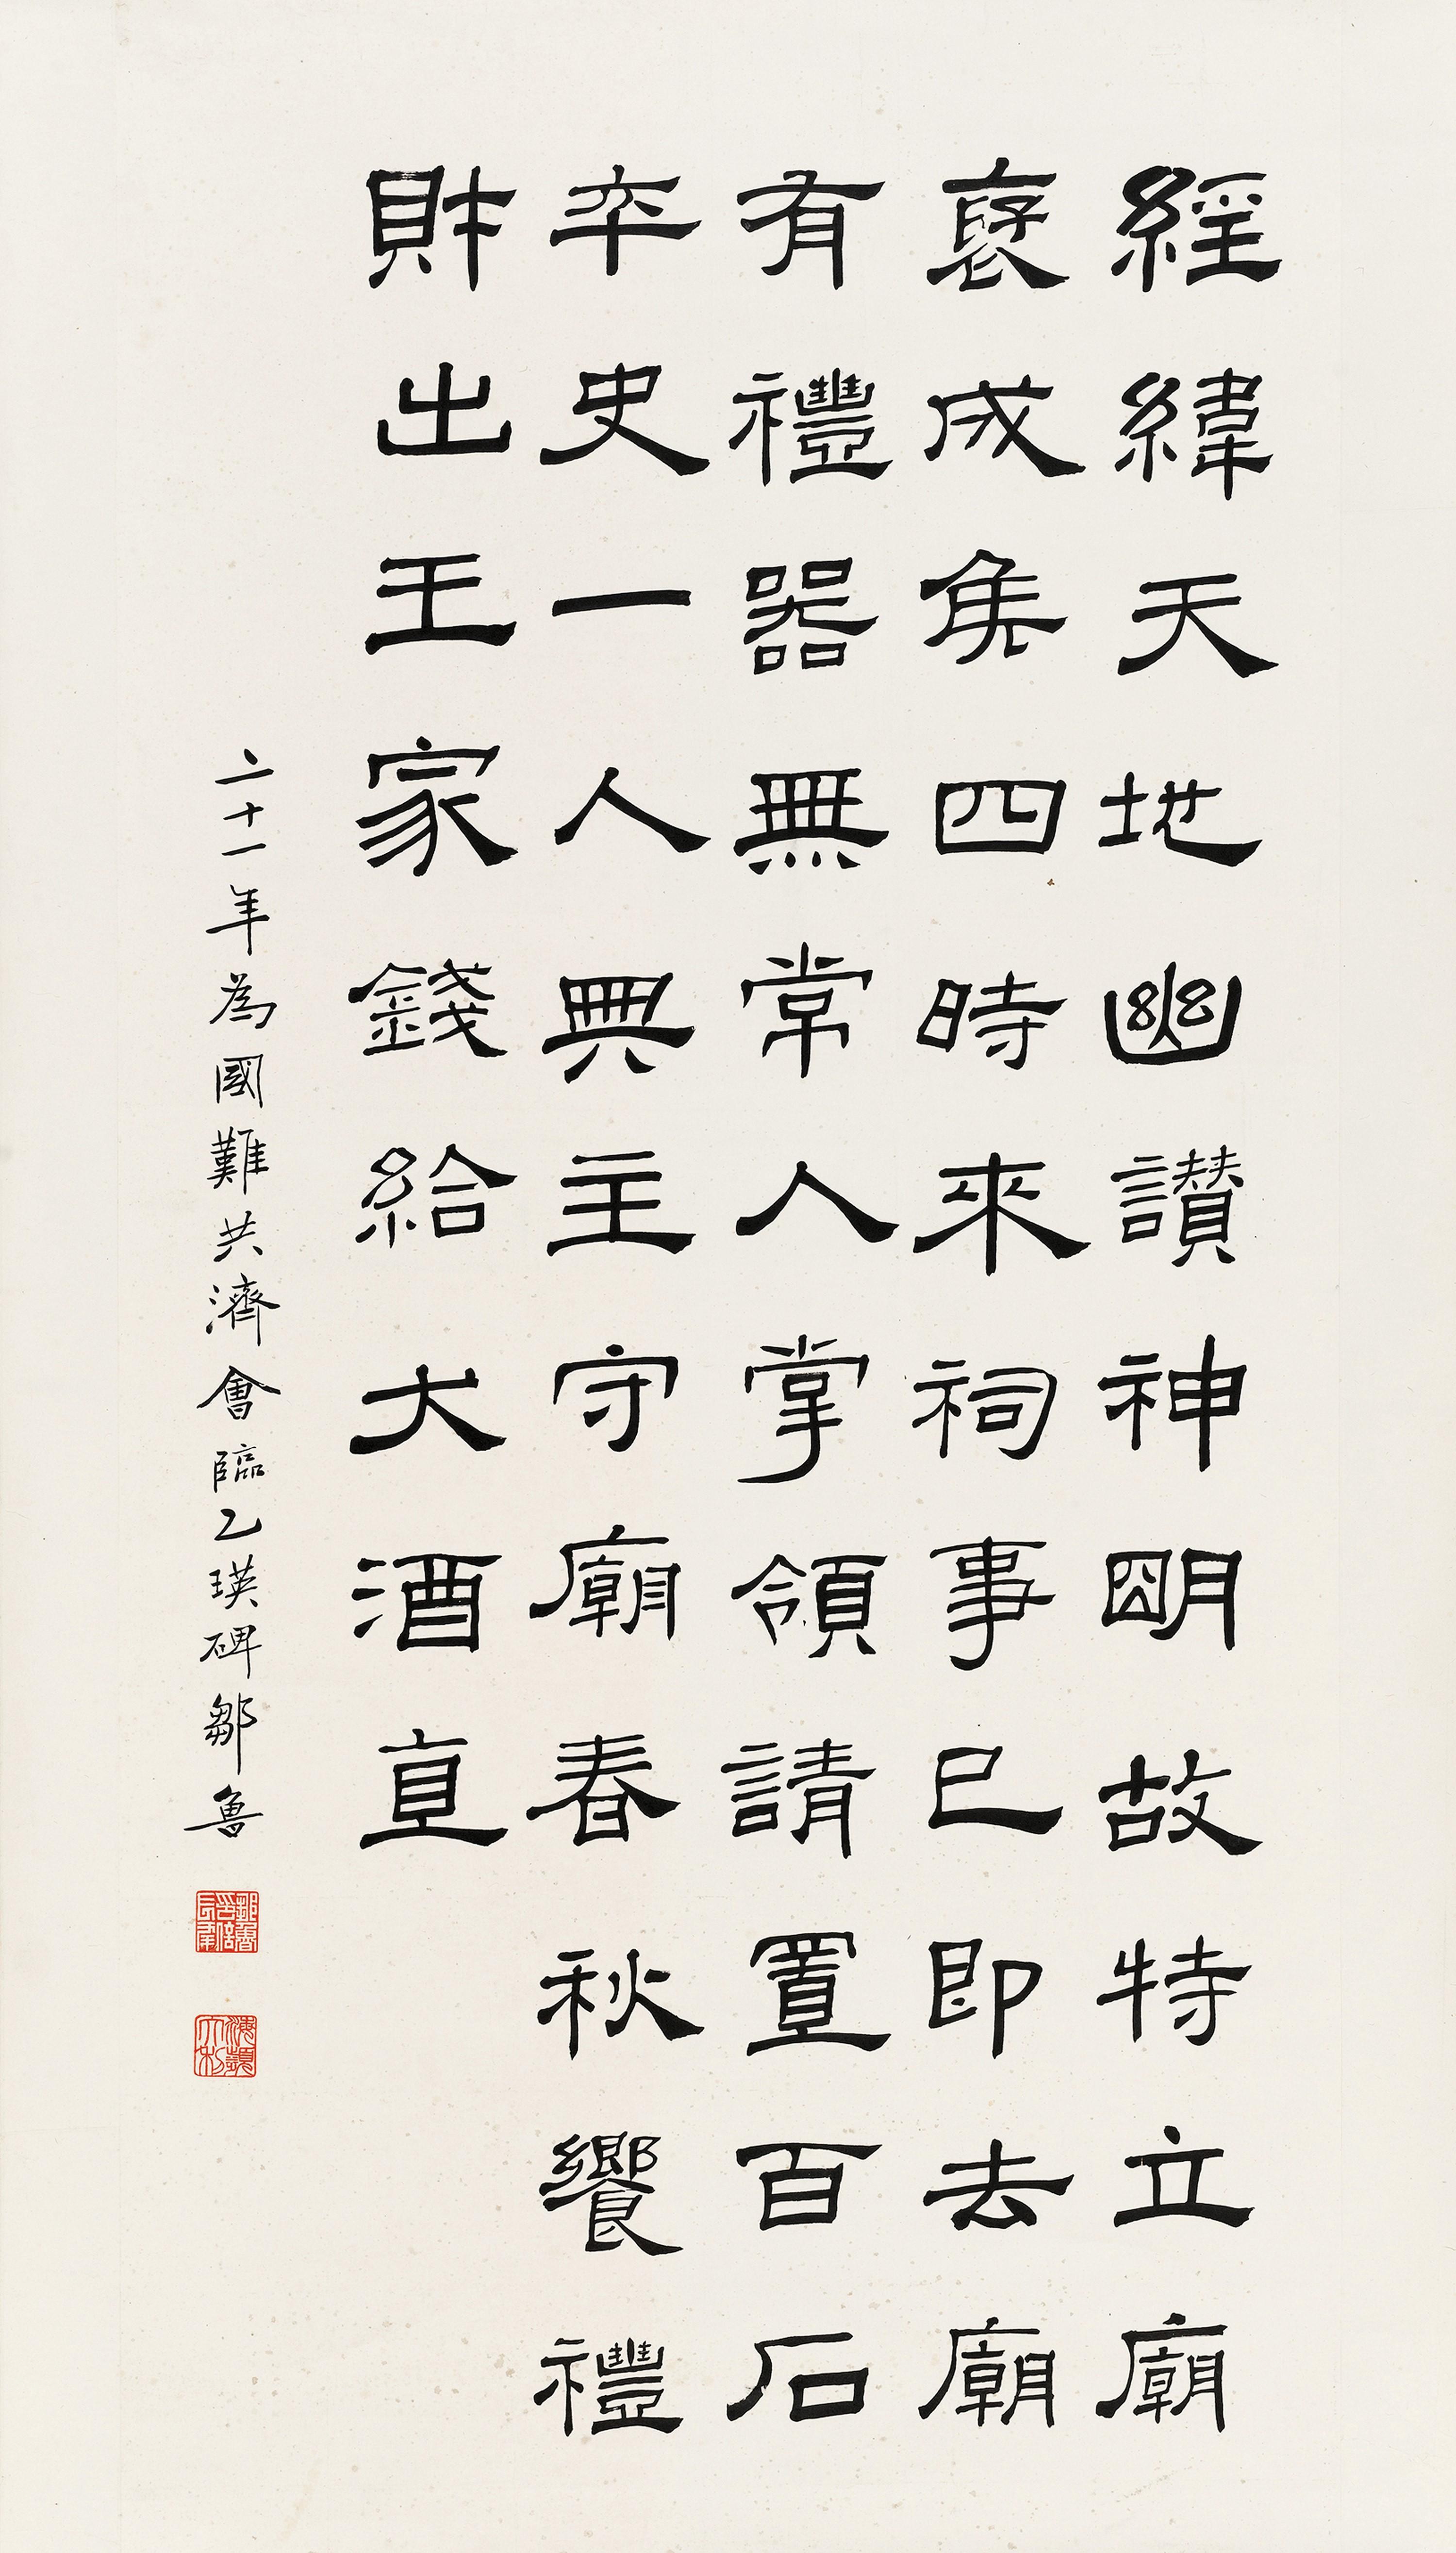 經緯天地幽讃神明故特立廟
褎成侯四時來祠事已即去廟
有禮器無常人掌領請置百石
卒史一人典主守廟春秋饗禮
財出王家錢給犬酒直
二十一年為國難共濟會臨乙瑛碑鄒魯
鄒魯印信長壽